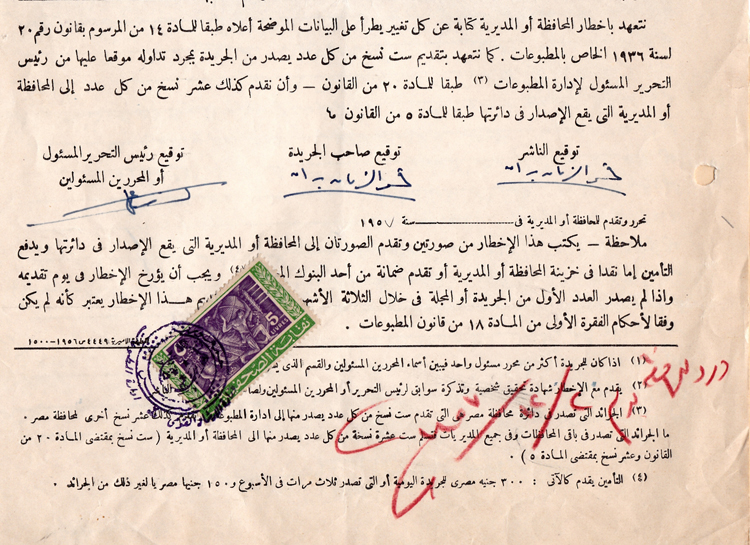 نتعهد باخطار المحافظة أو المديرية كتابة عن كل تغيير يطرأ على البيانات الموضحة أعلاه طبقا للمادة ١٤ من المرسوم بقانون رقم ٢٠
لسنة ١٩٣٦ الخاص بالمطبوعات . كما نتعهد بتقديم ست نسخ من كل عدد يصدر من الجريدة بمجرد تداوله موقعا عليها من رئيس
التحرير المسئول لإدارة المطبوعات (٣) طبقا للمادة ٢٠ من القانون — وأن نقدم كذلك عشر نسخ من كل عدد إلى المحافظة
أو المديرية التى يقع الإصدار فى دائرتها طبقا للمادة ٥ من القانون
توقيع الناشر
توقيع صاحب الجريدة
توقيع رئيس التحرير المسئول
أو المحررين المسئولين
تحرر وتقدم للمحافظة أو المديرية فى سنة ١٩٥٧
ملاحظة — يكتب هذا الإخطار من صورتين وتقدم الصورتان إلى المحافظة أو المديرية التى يقع الإصدار فى دائرتها ويدفع
التأمين إما نقدا فى خزينة المحافظة أو المديرية أو تقدم ضمانة من أحد البنوك (٤) ويجب أن يؤرخ الإخطار فى يوم تقديمه
واذا لم يصدر العدد الأول من الجريدة أو المجلة فى خلال الثلاثة الأشهر هذا الإخطار يعتبر كأنه لم يكن
وفقا لأحكام الفقرة الأولى من المادة ١٨ من قانون المطبوعات .
٤٤٤٩ س ١٩٥٦-١٥٠٠
5
نقابة الصحفيين
(١) اذا كان للجريدة أكثر من محرر مسئول واحد فيبين أسماء المحررين المسئولين والقسم الذى
(٢) يقدم مع الإخطار شهادة تحقيق شخصية وتذكرة سوابق لرئيس التحرير أو المحررين المسئولين
(٣) الجرائد التى تصدر فى دائرة محافظة مصر هى التى تقدم ست نسخ من كل عدد يصدر منها إلى إدارة المطبوعات عشر نسخ أخرى لمحافظة مصر .
ما الجرائد التى تصدر فى باقى المحافظات وفى جميع المديريات فتقدم ست عشرة نسخة من كل عدد يصدر منها الى المحافظة أو المديرية ( ست نسخ بمقتضى المادة ٢٠ من
القانون وعشر نسخ بمقتضى المادة ٥ ) .
(٤) التأمين يقدم كالآتى : ٣٠٠ جنيه مصرى للجريدة اليومية أو التى تصدر ثلاث مرات فى الأسبوع و ١٥٠ جنيها مصريا لغير ذلك من الجرائد .